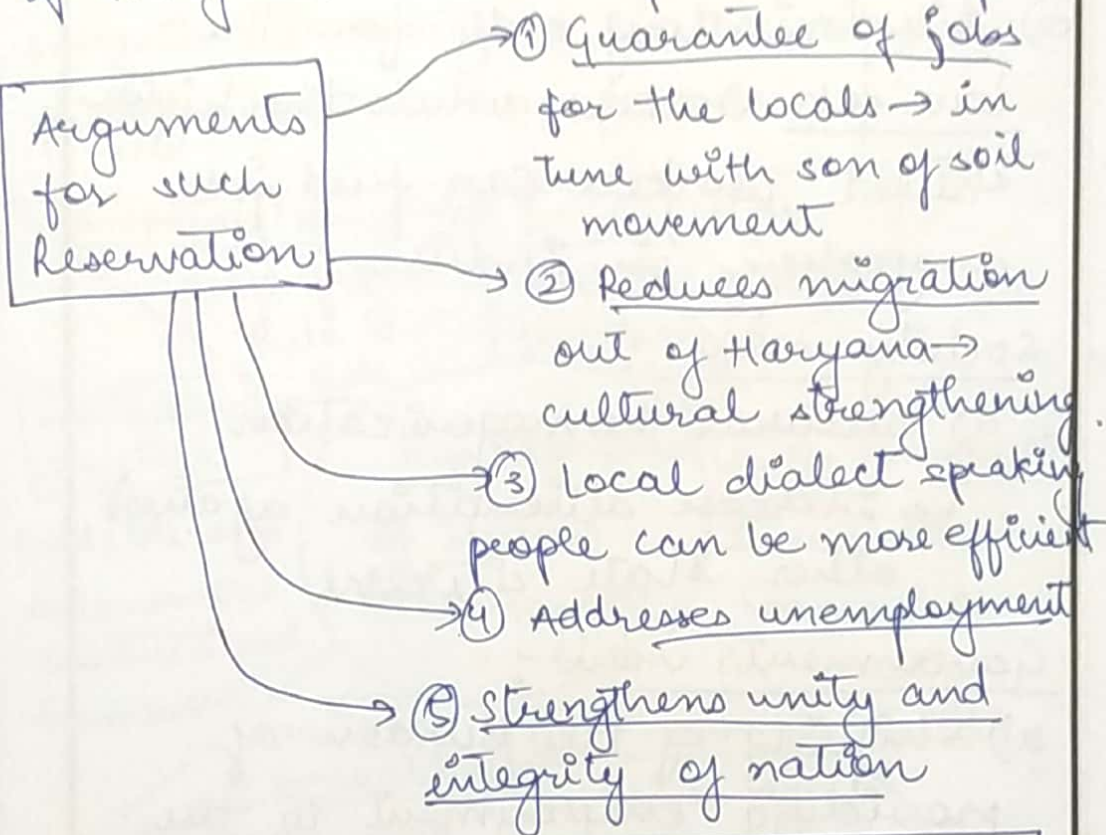 Arguments
for such
Reservation
① Guarantee of jobs
for the locals → in
tune with son of soil
movement
② Reduces migration
out of Haryana →
cultural strengthening.
③ Local dialect speaking
people can be more efficient
④ Addresses unemployment
⑤ Strengthens unity and
integrity of nation